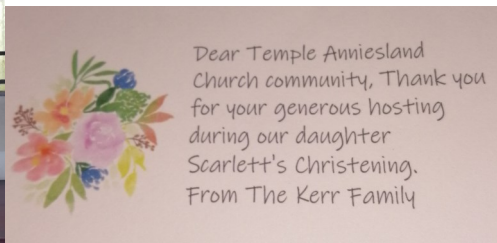 Dear Temple Anniesland
Church community, Thank you
for your generous hosting
during our daughter
Scarlett's Christening.
From The Kerr Family